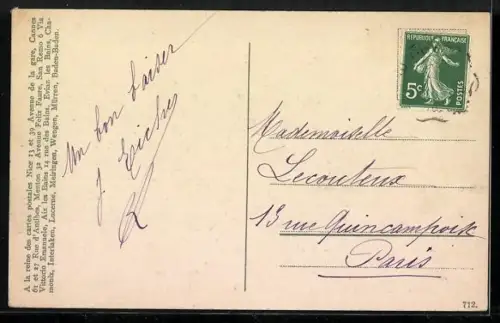 A la reine des cartes postales Nice 15 et 39 Avenue de la gare, Cannes
61 et 27 Rue d'Antibes, Menton 32 Avenue Felix Faure, San Remo 6 Via
Vittorio Emanuele, Aix les Bains 14 rue des Bains, Evian les Bains, Cha-
monix, Interlaken, Lucerne, Meiringen, Wengen, Mürren, Baden-Baden.
Un bon baiser
J.
REPUBLIQUE FRANÇAISE
5c
POSTES
Mademoiselle
Lecouteux
13 rue Quincampoix
Paris
712.